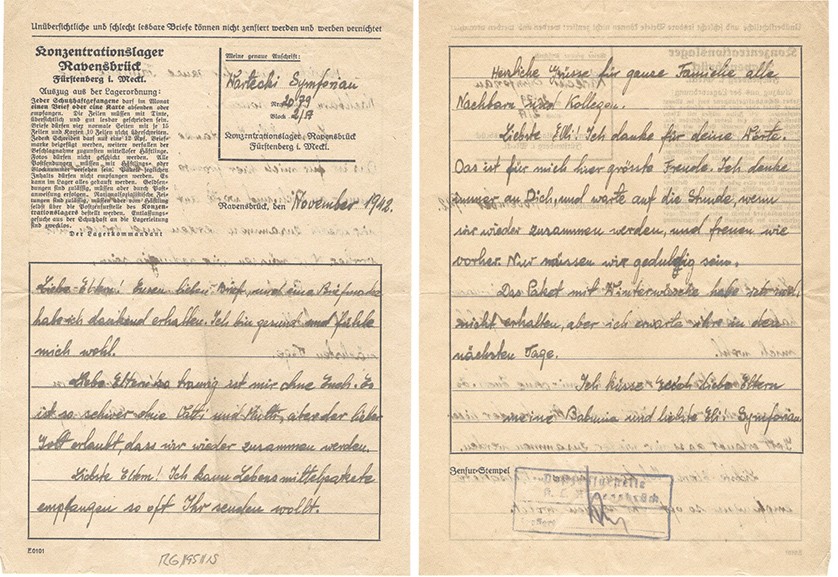 Unübersichtliche und schlecht lesbare Briefe können nicht zensiert werden und werden vernichtet
Konzentrationslager
Ravensbrück
Fürstenberg i. Meckl.
Auszug aus der Lagerordnung:
Jeder Schutzhaftgefangene darf im Monat
einen Brief oder eine Karte absenden oder
empfangen. Die Zeilen müssen mit Tinte,
übersichtlich und gut lesbar geschrieben sein.
Briefe dürfen vier normale Seiten mit je 15
Zeilen und Karten 10 Zeilen nicht überschreiten.
Jedem Schreiben darf nur eine 12 Rpf. Brief-
marke beigefügt werden, weitere verfallen der
Beschlagnahme zugunsten mittelloser Häftlinge.
Fotos dürfen nicht geschickt werden. Alle
Postsendungen müssen mit Häftlings- und
Blocknummer versehen sein. Pakete jeglichen
Inhalts dürfen nicht empfangen werden. Es
kann im Lager alles gekauft werden. Geldsen-
dungen sind zulässig, müssen aber durch Post-
anweisung erfolgen. Nationalsozialistische Zei-
tungen sind zulässig, müssen aber vom Häftling
selbst über die Postzensurstelle des Konzen-
trationslagers bestellt werden. Entlassungsge-
suche aus der Schutzhaft an die Lagerleitung
sind zwecklos.
Der Lagerkommandant
Meine genaue Anschrift:
Symforian
Nr. 2079
Block
Konzentrationslager Ravensbrück
Fürstenberg i. Meckl.
Ravensbrück, den November 1942.
Liebe Eltern! Euren lieben Brief, und eine Briefmarke
habe ich dankend erhalten. Ich bin gesund und fühle
mich wohl.
Liebe Eltern so traurig ist mir ohne Euch. Es
ist so schwer ohne und aber der liebe
Gott erlaubt, dass wir wieder zusammen werden.
Liebste Eltern! Ich kann Lebensmittelpakete
empfangen so oft Ihr senden wollt.
E0101
RG
Herzliche Grüsse für ganse Familie alle
Nachbarn und Kollegen.
Liebste Elli! Ich danke für deine Karte.
Das ist für mich hier grösste Freude. Ich denke
immer an Dich, und warte auf die Stunde, wenn
wir wieder zusammen werden, und freuen wie
vorher. Nur müssen wir geduldig sein.
Das Paket mit habe ich noch
nicht erhalten, aber ich erwarte ihre in den
nächsten Tage.
Ich küsse euch liebe Eltern
meine und liebste Eli! Symforian
Zensur-Stempel